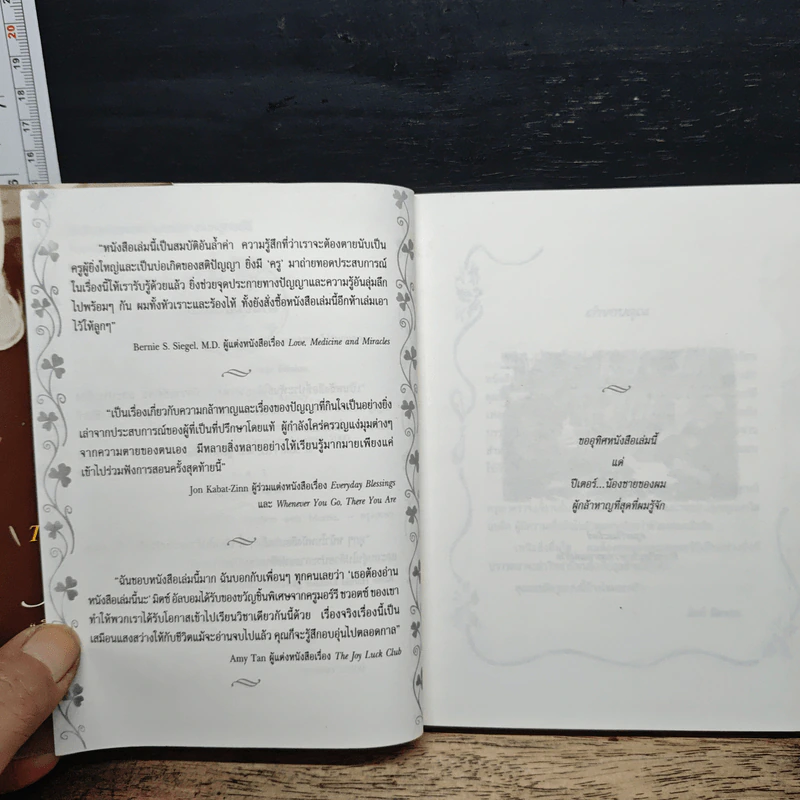 “หนังสือเล่มนี้เป็นสมบัติอันล้ำค่า ความรู้สึกที่ว่าเราจะต้องตายนับเป็น
ครูผู้ยิ่งใหญ่และเป็นบ่อเกิดของสติปัญญา ยิ่งมี ‘ครู’ มาถ่ายทอดประสบการณ์
ในเรื่องนี้ให้เรารับรู้ด้วยแล้ว ยิ่งช่วยจุดประกายทางปัญญาและความรู้อันลุ่มลึก
ไปพร้อมๆ กัน ผมทั้งหัวเราะและร้องไห้ ทั้งยังสั่งซื้อหนังสือเล่มนี้อีกห้าเล่มเอา
ไว้ให้ลูกๆ”
Bernie S. Siegel, M.D. ผู้แต่งหนังสือเรื่อง Love, Medicine and Miracles
“เป็นเรื่องเกี่ยวกับความกล้าหาญและเรื่องของปัญญาที่กินใจเป็นอย่างยิ่ง
เล่าจากประสบการณ์ของผู้ที่เป็นที่ปรึกษาโดยแท้ ผู้กำลังใคร่ครวญแง่มุมต่างๆ
จากความตายของตนเอง มีหลายสิ่งหลายอย่างให้เรียนรู้มากมายเพียงแค่
เข้าไปร่วมฟังการสอนครั้งสุดท้ายนี้”
Jon Kabat-Zinn ผู้ร่วมแต่งหนังสือเรื่อง Everyday Blessings
และ Whenever You Go, There You Are
“ฉันชอบหนังสือเล่มนี้มาก ฉันบอกกับเพื่อนๆ ทุกคนเลยว่า ‘เธอต้องอ่าน
หนังสือเล่มนี้นะ’ มิตช์ อัลบอมได้รับของขวัญชิ้นพิเศษจากครูมอร์รี ชวอตซ์ ของเขา
ทำให้พวกเราได้รับโอกาสเข้าไปเรียนวิชาเดียวกันนี้ด้วย เรื่องจริงเรื่องนี้เป็น
เสมือนแสงสว่างให้กับชีวิตแม้จะอ่านจบไปแล้ว คุณก็จะรู้สึกอบอุ่นไปตลอดกาล”
Amy Tan ผู้แต่งหนังสือเรื่อง The Joy Luck Club
ขออุทิศหนังสือเล่มนี้
แด่
ปีเตอร์...น้องชายของผม
ผู้กล้าหาญที่สุดที่ผมรู้จัก
20
19
18
17
16